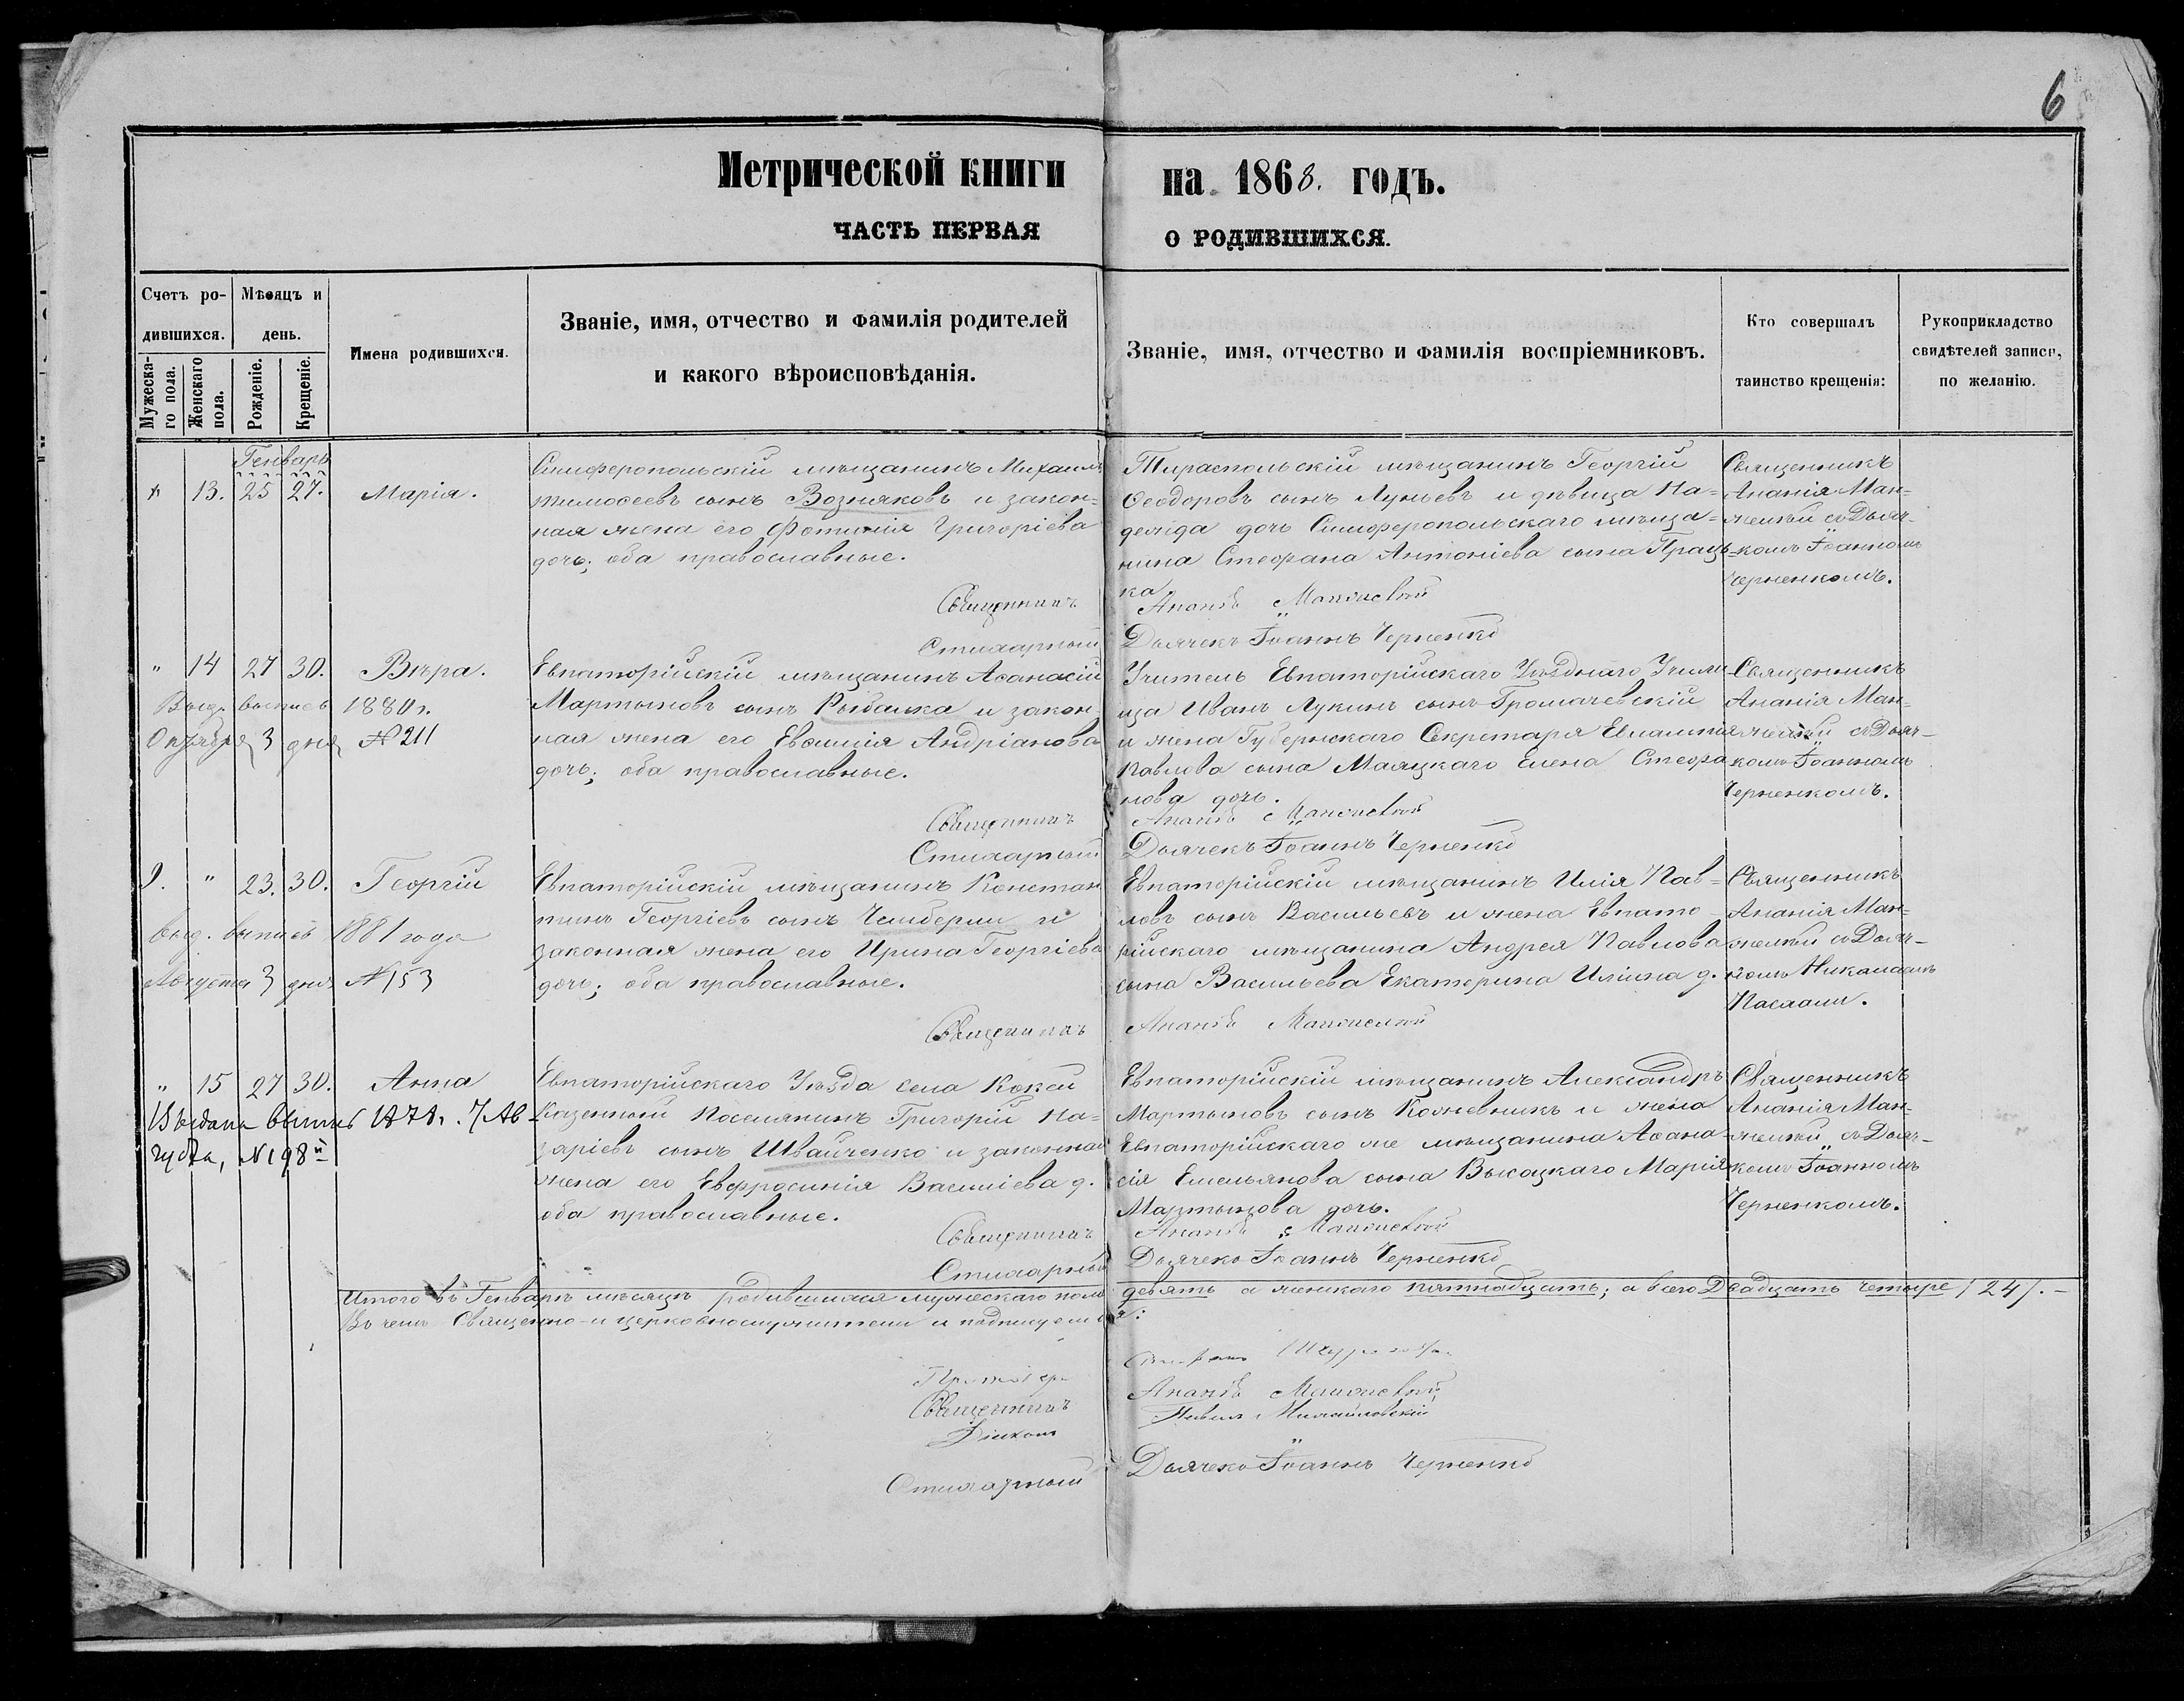 6
Метрической книги на 1868. годъ.
ЧАСТЬ ПЕРВАЯ О РОДИВШИХСЯ.
Счетъ ро-
дившихся.
Мужеска-
го пола.
Женскаго
пола.
Мѣсяцъ и
день.
Рожденіе.
Крещеніе.
Имена родившихся.
Званіе, имя, отчество и фамилія родителей
и какого вѣроисповѣданія.
Званіе, имя, отчество и фамилія воспріемниковъ.
Кто совершалъ
таинство крещенія:
Рукоприкладство
свидѣтелей записи,
по желанію.
Генварь
13. 25 27. Марія.
Симферопольскій мѣщанинъ Михаилъ
Тимоѳеевъ сынъ Возняковъ и закон-
ная жена его Фотинія Григоріева
дочь; оба православные.
Тираспольскій мѣщанинъ Георгій
Ѳеодоровъ сынъ Луньевъ и дѣвица На-
дежда дочь Симферопольскаго мѣща-
нина Стефана Антоніева сына
ка
Священникъ
Ананія Ман-
желѣй съ Дьяч-
комъ Іоанномъ
Черненкомъ.
Священникъ Ананій
Стихарный Дьячекъ Іоаннъ Черненко
" 14 27 30. Вѣра.
Выд. выпись 1880 г.
Октября 3 дня № 211
Евпаторійскій мѣщанинъ Аѳанасій
Мартыновъ сынъ Рыбалка и закон-
ная жена его Евѳимія Андріанова
дочь; оба православные.
Учитель Евпаторійскаго Уѣзднаго Учили-
ща Иванъ Лукинъ сынъ Громачевскій
и жена Губернскаго Секретаря
Павлова сына Маяцкаго Елена Стефа-
нова дочь.
Священникъ
Ананія Ман-
желѣй съ Дьяч-
комъ Іоанномъ
Черненкомъ.
Священникъ Ананій
Стихарный Дьячекъ Іоаннъ Черненко
9. " 23. 30. Георгій
выд. выпись 1881 года
Августа 3 дня № 153
Евпаторійскій мѣщанинъ Констан-
тинъ Георгіевъ сынъ Чемберли и
законная жена его Ирина Георгіева
дочь; оба православные.
Евпаторійскій мѣщанинъ Илія Пав-
ловъ сынъ Васильевъ и жена Евпато-
рійскаго мѣщанина Андрея Павлова
сына Васильева Екатерина Иліина д.
Священникъ
Ананія Ман-
желѣй съ Дьяч-
комъ Николаемъ
Священникъ Ананій
" 15 27 30. Анна
Выдана выпись 1878 г. 7 Ав-
густа, № 198й
Евпаторійскаго Уѣзда села Кокей
Казенный Поселянинъ Григорій На-
заріевъ сынъ Швайченко и законная
жена его Евфросинія Василіева д.
оба православные.
Евпаторійскій мѣщанинъ Александръ
Мартыновъ сынъ Кожевникъ и жена
Евпаторійскаго же мѣщанина Аѳана-
сія Емельянова сына Высоцкаго Марія
Мартынова дочь.
Священникъ
Ананія Ман-
желѣй съ Дьяч-
комъ Іоанномъ
Черненкомъ.
Священникъ Ананій
Стихарный Дьячекъ Іоаннъ Черненко
Итого въ Генварѣ мѣсяцѣ родившихся мужескаго пола девять а женскаго пятнадцать; а всего Двадцать четыре /24/. –
Въ чемъ Священно-и церковнослужители и подписуемся:
Протоіерей
Священникъ Ананій
Діаконъ Михайловскій
Стихарный Дьячекъ Іоаннъ Черненко